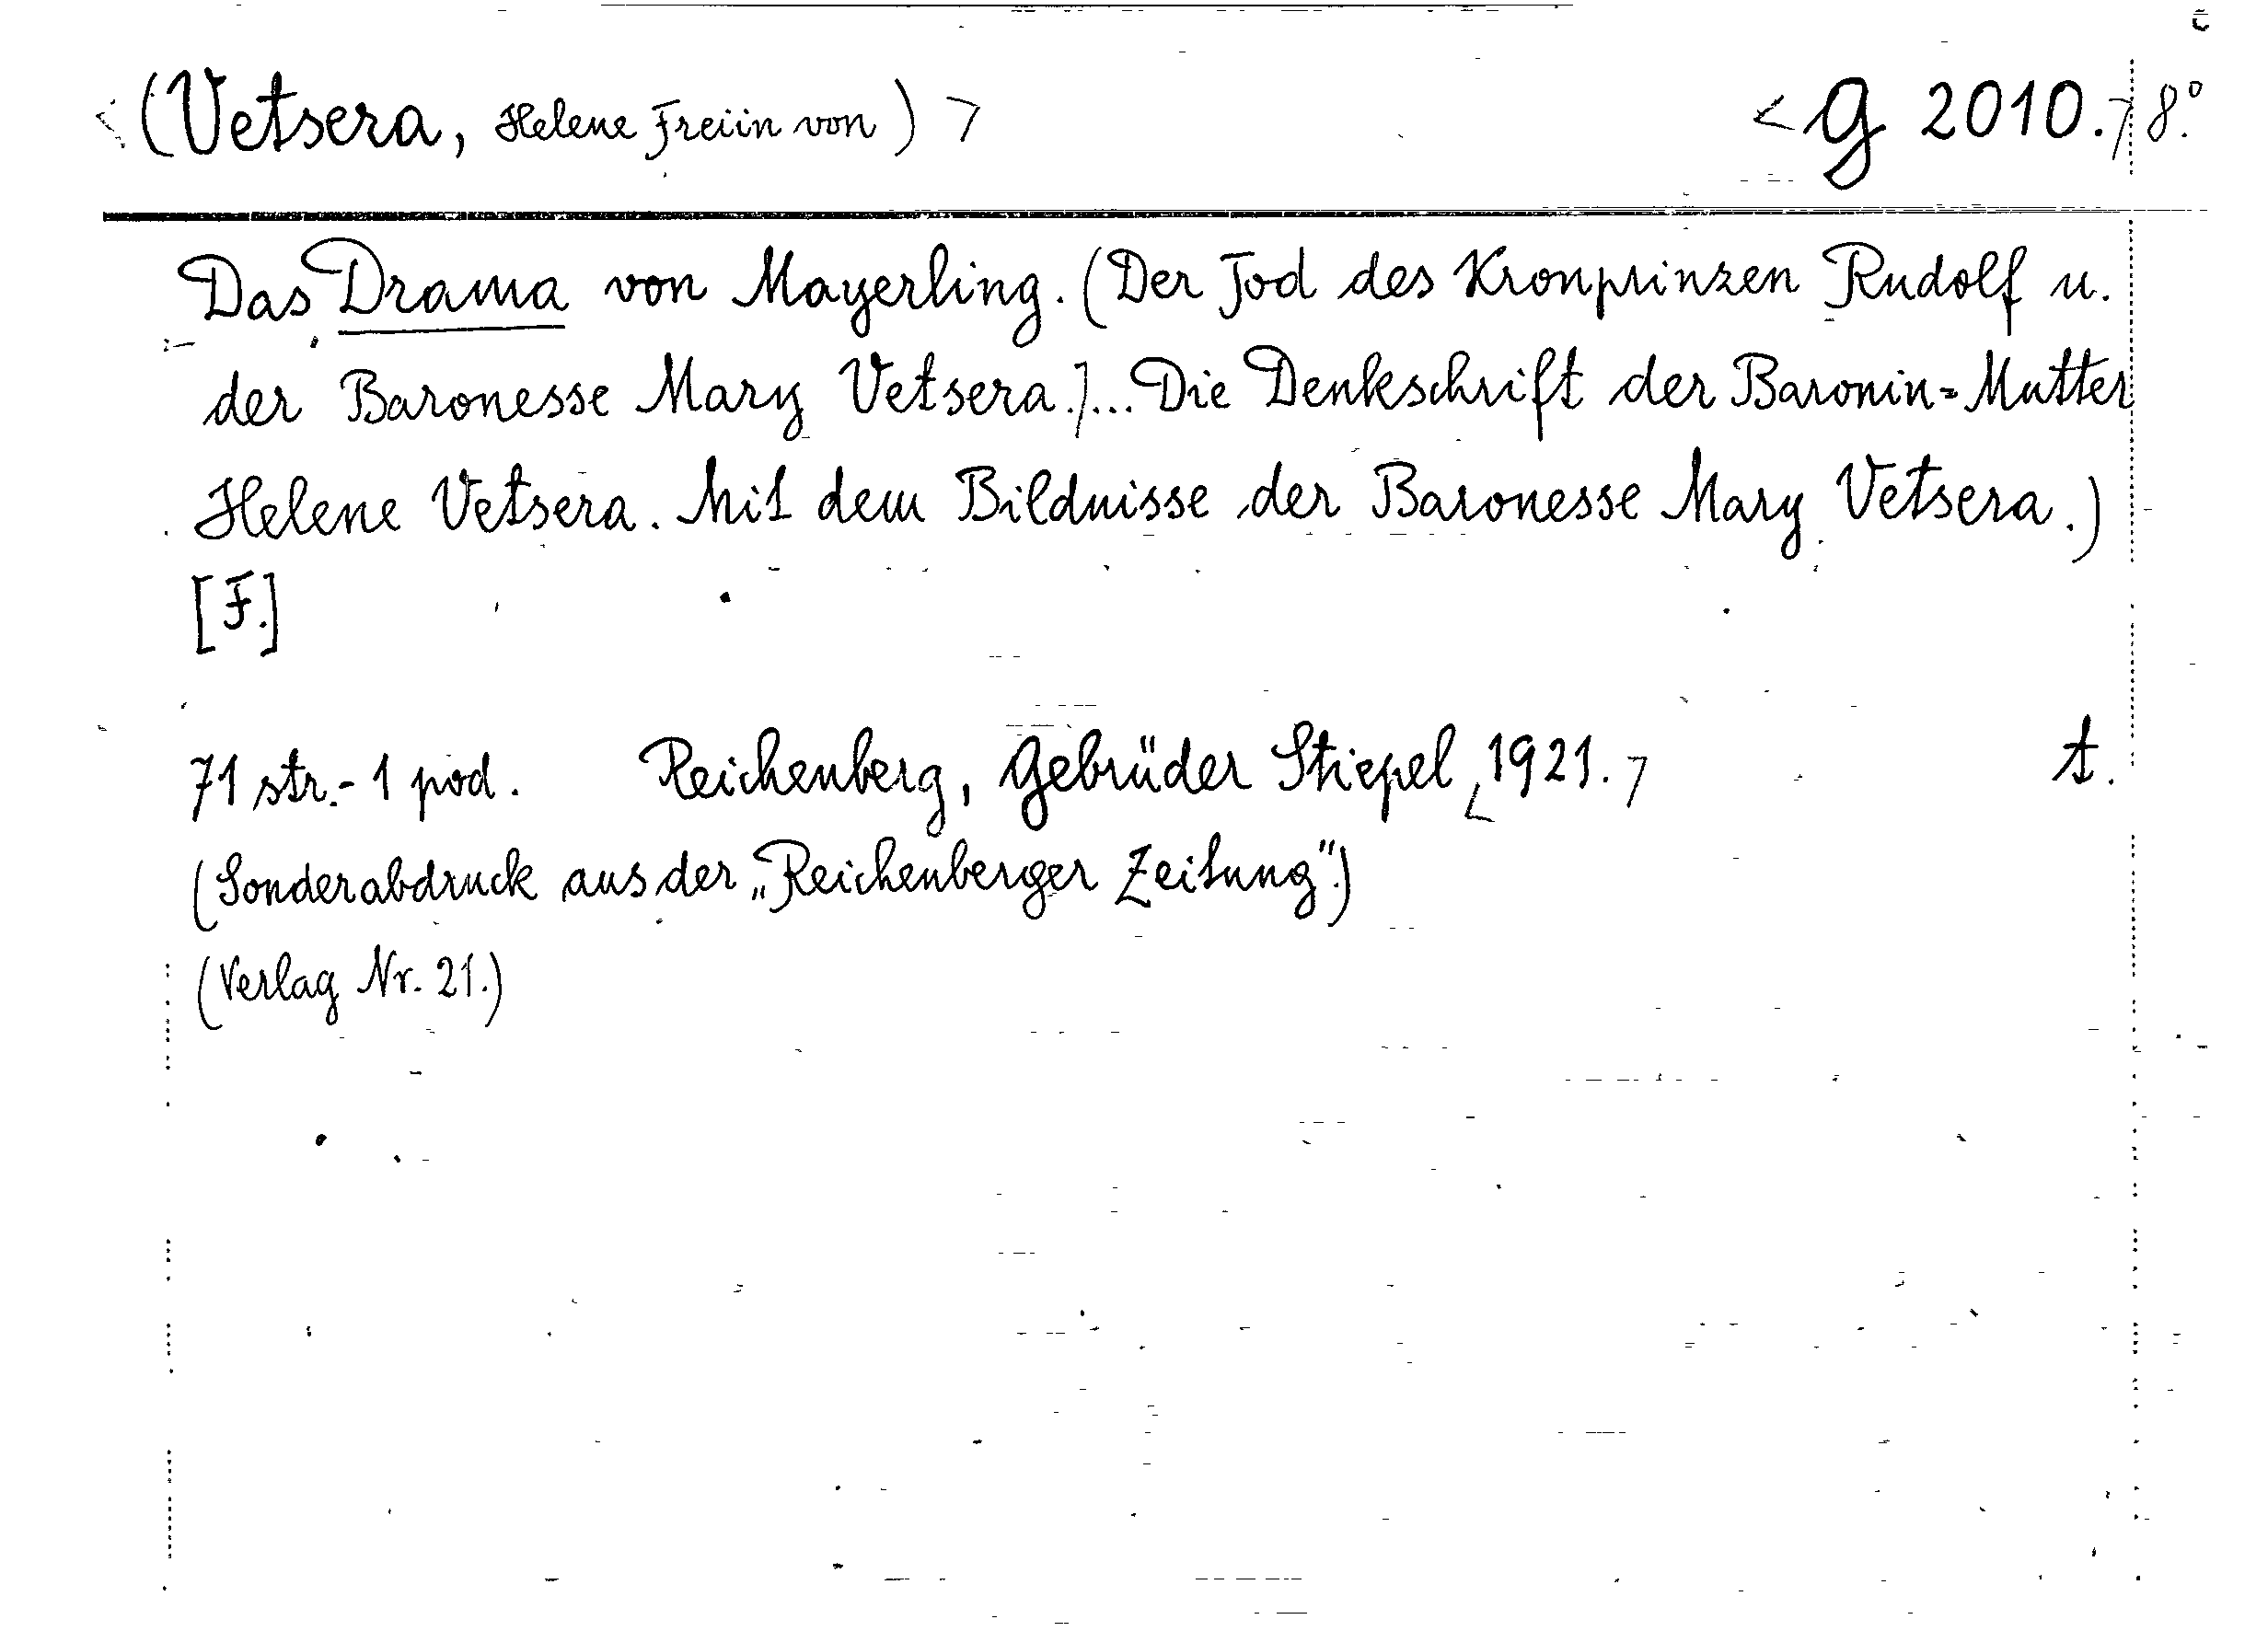 <(Vetsera, Helene Freiin von)> <g 2010.> 8.°
Das Drama von Mayerling. (Der Tod des Kronprinzen Rudolf u.
der Baronesse Mary Vetsera.]... Die Denkschrift der Baronin=Mutter
Helene Vetsera. Mit dem Bildnisse der Baronesse Mary Vetsera.)
[F.]
71 str.- 1 pod. Reichenberg, Gebrüder Stiepel <1921.> t.
(Sonderabdruck aus der „Reichenberger Zeitung".)
(Verlag Nr. 21.)